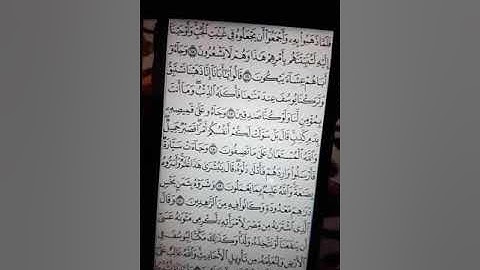 فَلَمَّا ذَهَبُوا۟ بِهِۦ وَأَجْمَعُوٓا۟ أَن يَجْعَلُوهُ فِى غَيَٰبَتِ ٱلْجُبِّ وَأَوْحَيْنَآ
إِلَيْهِ لَتُنَبِّئَنَّهُم بِأَمْرِهِمْ هَٰذَا وَهُمْ لَا يَشْعُرُونَ ١٥ وَجَآءُوٓ
أَبَاهُمْ عِشَآءً يَبْكُونَ ١٦ قَالُوا۟ يَٰٓأَبَانَآ إِنَّا ذَهَبْنَا نَسْتَبِقُ
وَتَرَكْنَا يُوسُفَ عِندَ مَتَٰعِنَا فَأَكَلَهُ ٱلذِّئْبُ وَمَآ أَنتَ
بِمُؤْمِنٍ لَّنَا وَلَوْ كُنَّا صَٰدِقِينَ ١٧ وَجَآءُو عَلَىٰ قَمِيصِهِۦ
بِدَمٍ كَذِبٍ قَالَ بَلْ سَوَّلَتْ لَكُمْ أَنفُسُكُمْ أَمْرًا فَصَبْرٌ جَمِيلٌ
وَٱللَّهُ ٱلْمُسْتَعَانُ عَلَىٰ مَا تَصِفُونَ ١٨ وَجَآءَتْ سَيَّارَةٌ
فَأَرْسَلُوا۟ وَارِدَهُمْ فَأَدْلَىٰ دَلْوَهُۥ قَالَ يَٰبُشْرَىٰ هَٰذَا غُلَٰمٌ وَأَسَرُّوهُ
بِضَٰعَةً وَٱللَّهُ عَلِيمٌۢ بِمَا يَعْمَلُونَ ١٩ وَشَرَوْهُ بِثَمَنٍۭ بَخْسٍ
دَرَٰهِمَ مَعْدُودَةٍ وَكَانُوا۟ فِيهِ مِنَ ٱلزَّٰهِدِينَ ٢٠ وَقَالَ
ٱلَّذِى ٱشْتَرَىٰهُ مِن مِّصْرَ لِٱمْرَأَتِهِۦٓ أَكْرِمِى مَثْوَىٰهُ عَسَىٰٓ
أَن يَنفَعَنَآ أَوْ نَتَّخِذَهُۥ وَلَدًا وَكَذَٰلِكَ مَكَّنَّا لِيُوسُفَ فِى
ٱلْأَرْضِ وَلِنُعَلِّمَهُۥ مِن تَأْوِيلِ ٱلْأَحَادِيثِ وَٱللَّهُ غَالِبٌ عَلَىٰٓ